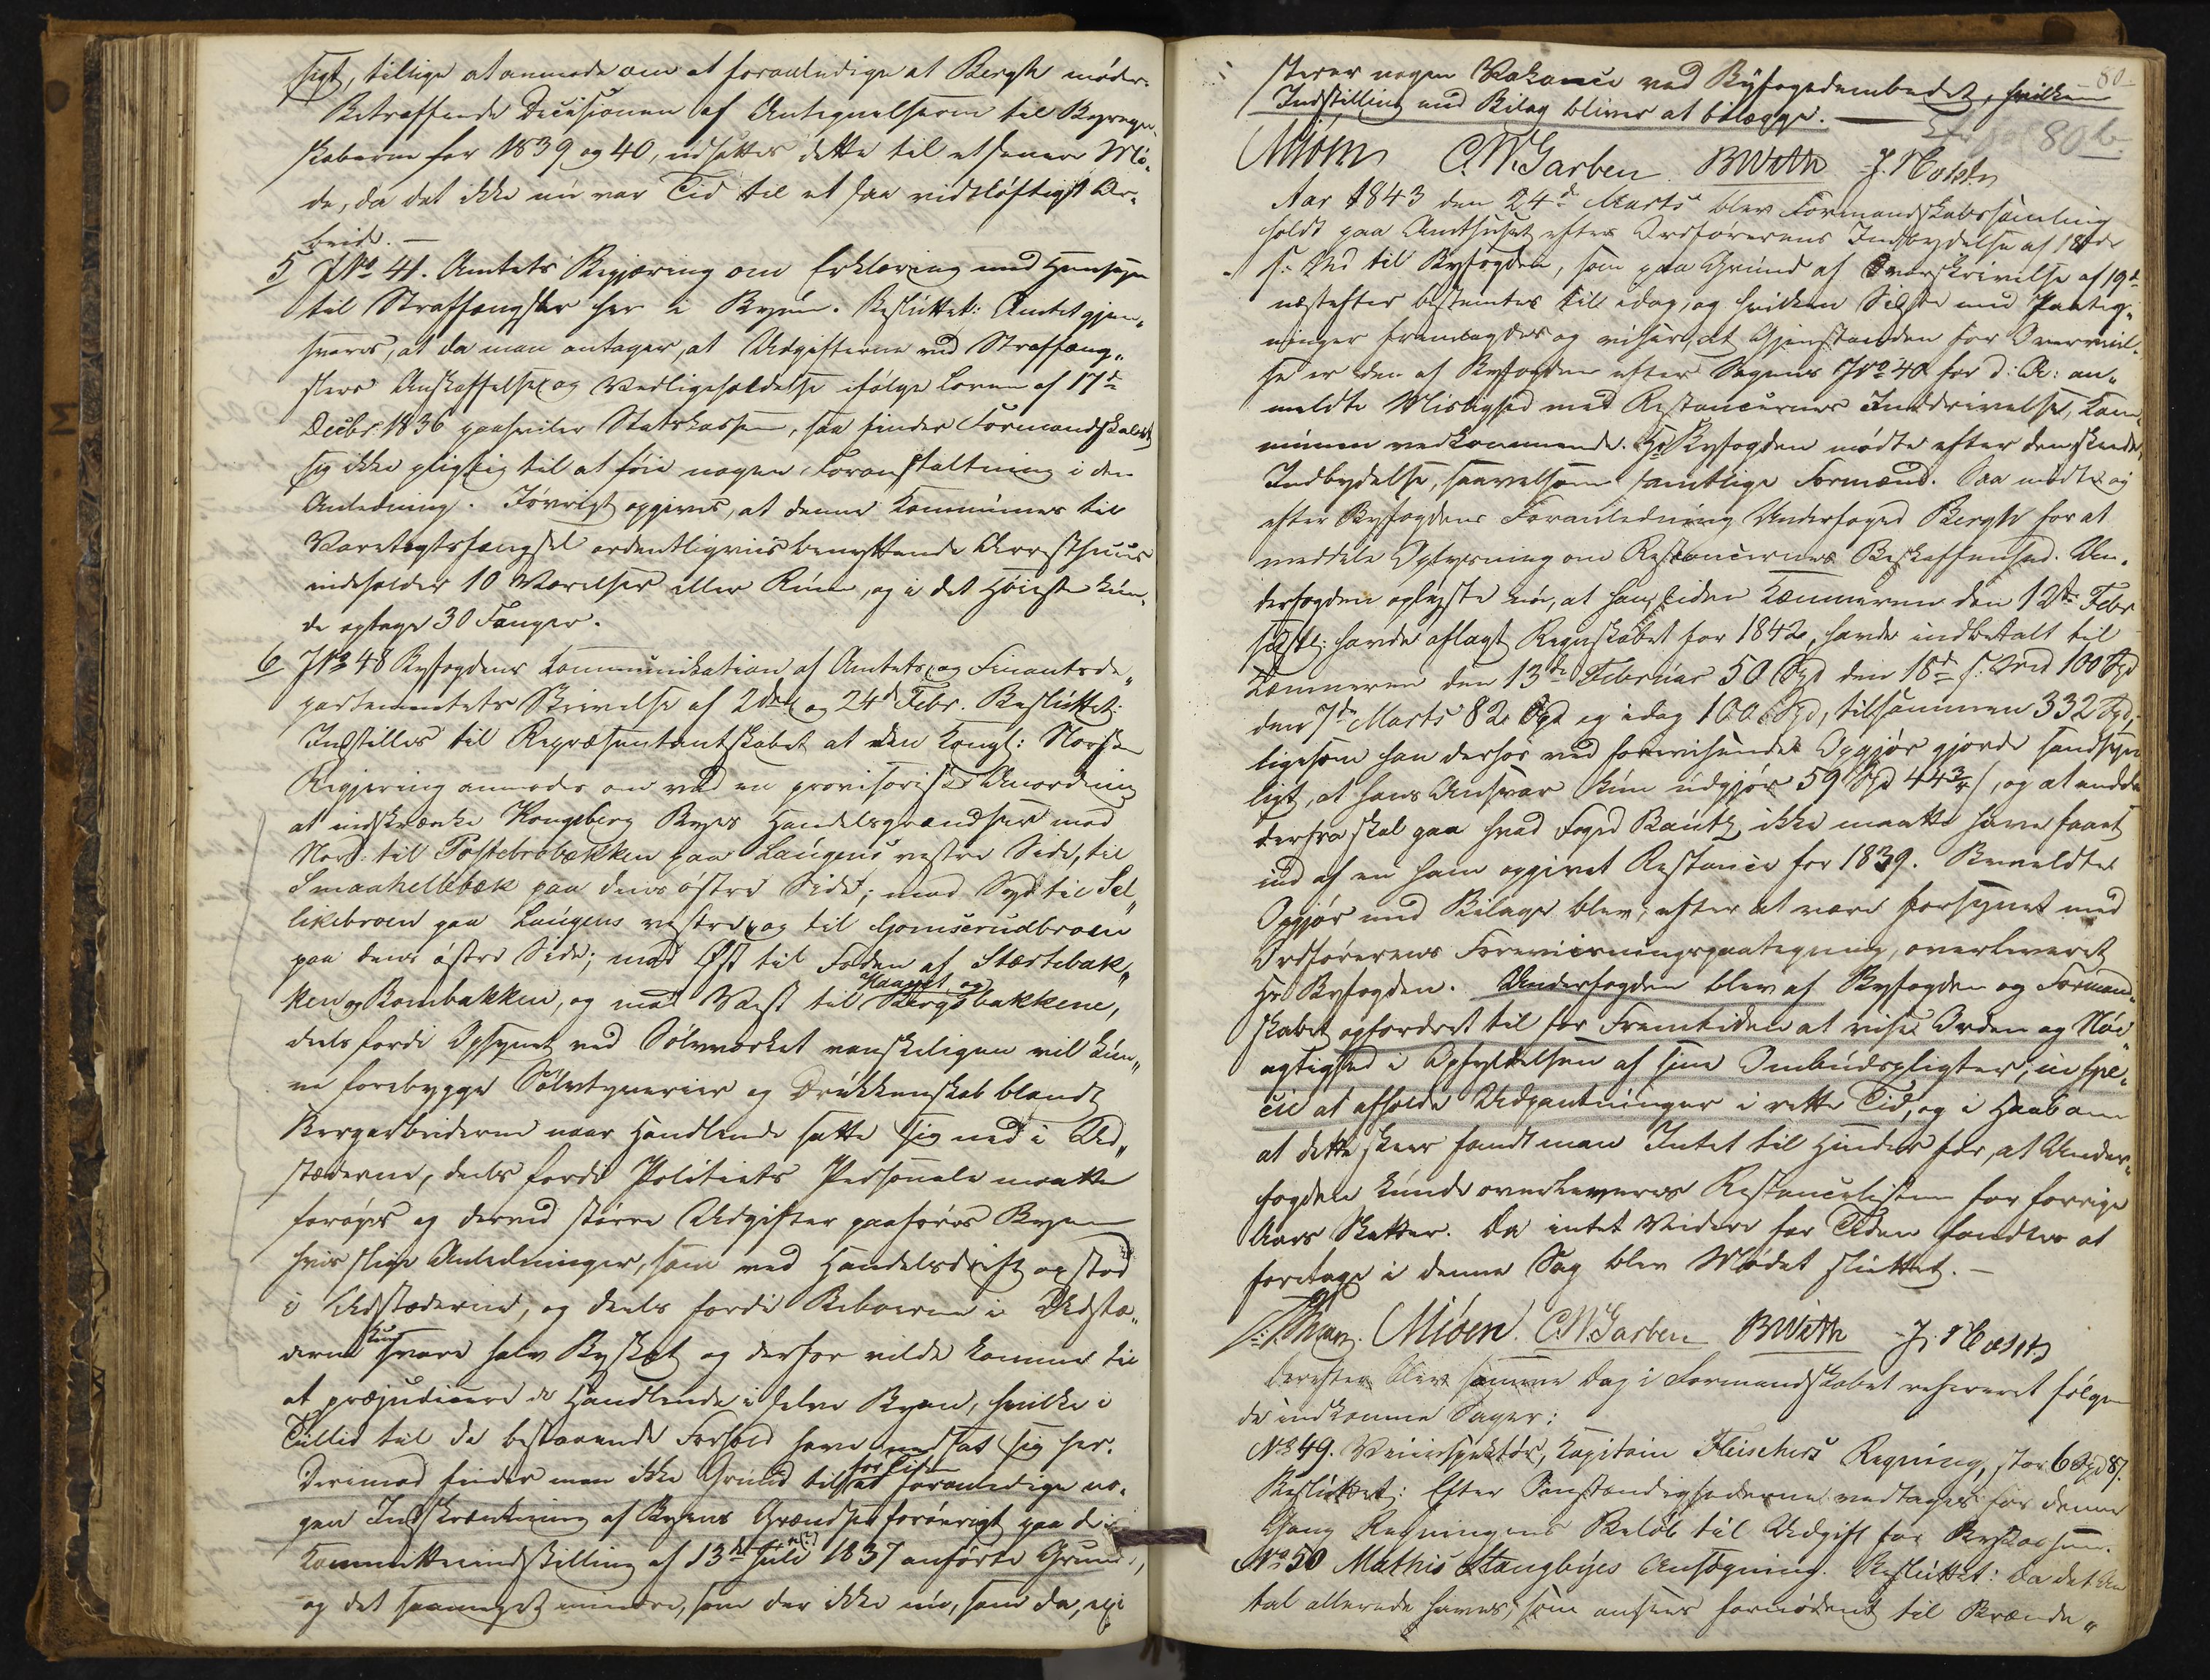 sigt, tillige at anmode om at foranledige at Bergh møder.
Betræffende Decisionen af Antegnelserne til Byregn-
skaberne for 1839 og 40, udsattes dette til et senere Mø-
de, da det ikke nu var Tid til et saa vidtløftigt Ar-
beide. —
5 J No 41. Amtets Begjæring om Erklæring med Hensyn
til Straffængsler her i Byen. Besluttet: Amtet gjen-
svares, at da man antager, at Udgifterne ved Straffæng-
slers Anskaffelse og Vedligeholdelse ifølge Loven af 17de
Decbr 1836 paahviler Statskassen, saa finder Formandskabet
sig ikke pligtig til at føie nogen Foranstaltning i den
Anledning. Iøvrigt opgives, at denne Kommunes til
Varetægtsfængsel ordentligviis benyttende Arresthuus
indeholder 10 Værelser eller Rum, og i det Høieste kun-
de optage 30 Fanger.
6 J No 48 Byfogdens Kommunikation af Amtets og Finantsde-
partementets Skrivelse af 2den og 24de Febr. Besluttet:
Indstilles til Repræsentantskabet at den Kongl: Norske
Regjering anmodes om ved en provisorisk Anordning
at indskrænke Kongsberg Byes Handelsgrændser mod
Nord til Postebrobækken paa Laugens vestre Side, til
Smaahellebæk paa dens østre Side; mod Syd til Sel-
likebroen paa Laugens vestre, og til Gomserudbroen
paa dens østre Side; mod Øst til Foden af Stærtebak-
ken og Bombakken, og mod Vest til Haavet og Bergsbakkene,
deels fordi Opsynet ved Sølvværket vanskeligen vil kun-
ne forebygge Sølvtyverier og Drukkenskab blandt
Bergarbeiderne naar Handlende satte sig ned i Ud-
stæderne, deels fordi Politiets Personale maatte
forøges og derved større Udgifter paaføres Byen
hvis slige Anledninger, som ved Handelsdrift opstod
i Udstæderne, og deels fordi Beboerne i Udstæ-
derne kun svare halv Byskat og derfor vilde komme til
at præjudicere de Handlende i selve Byen, hvilke i
Tillid til de bestaaende Forhold have nedsat sig her.
Derimod finder man ikke Grund til for Tiden at foranledige no-
gen Indskrænkning af Byens Grændser forøvrigt paa de i
Kommitteeindstilling af 13de Juli 1837 anførte Grunde,
og det saameget mindre, som der ikke nu, som da, exi-
80.
sterer nogen Vakance ved Byfogedembedet, hvilken
Indstilling med Bilag bliver at bilægge. —
80 b.
Miøen C.W. Garben. BWith J. Holst
Aar 1843 den 24de Marts blev Formandskabssamling
holdt paa Amthuset efter Ordførerens Indbydelse af 18de
s: Md til Byfogden, som paa Grund af Overskrivelse af 19de
næstefter bestemtes til idag, og hvilken Sidste med Paateg-
ninger fremlagdes og viser, at Gjenstanden for Overveiel-
se er den af Byfogden efter Sagens J No 40 for d: A: an-
meldte Mislighed med Restancernes Inddrivelse, Kom-
munen vedkommende. Hr Byfogden mødte efter den skeede
Indbydelse, saavelsom samtlige Formænd. Saa mødte og
efter Byfogdens Foranledning Underfoged Bergh for at
meddele Oplysning om Restancernes Beskaffenhed. Un-
derfogden oplyste nu, at han, siden Kæmneren den 12de Febr
sidstl: havde aflagt Regnskabet for 1842, havde indbetalt til
Kæmneren den 13de Februar 50 Spd den 18de s: Md 100 Spd
den 7de Marts 82 Spd og idag 100 Spd, tilsammen 332 Spd,
ligesom han derhos ved forevisende Opgjør gjorde sandsyn-
ligt, at hans Ansvar kun udgjør 59 Spd 44 3/4 s, og at endda
derfra skal gaa hvad Foged Bautz ikke maatte have faaet
ind af en ham opgivet Restance for 1839. Bemeldte
Opgjør med Bilage blev, efter at være forsynet med
Ordførerens Foreviisningspaategning, overleveret
Hr Byfogden. Underfogden blev af Byfogden og Formand-
skabet opfordret til for Fremtiden at vise Orden og Nøi-
agtighed i Opfyldelsen af sine Ombudspligter, in spe-
cie at afholde Udpantninger i rette Tid, og i Haab om
at dette skeer fandt man Intet til Hinder for, at Under-
fogden kunde overleveres Restancelisten for forrige
Aars Skatter. Da intet Videre for Tiden fandtes at
foretage i denne Sag blev Mødet sluttet. —
Miøen. C.W. Garben BWith J. Holst
Derefter blev samme Dag i Formandskabet refereret følgen-
de indkomne Sager:
No 49. Veiinspekteur, Kapitain Fleischers Regning, stor 6 Spd 87.
Besluttet: Efter Omstændighederne vedtages for denne
Gang Regningens Beløb til Udgift for Bykassen.
No 50 Mathis Stangbyes Ansøgning. Besluttet: Da det An-
tal allerede haves, som ansees fornødent til Brænde-